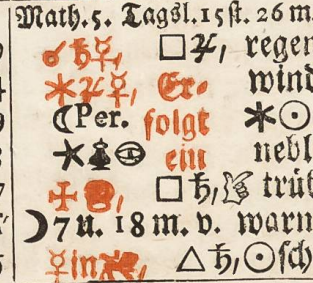 Math. 5. Tagsl. 15 st. 26 m.
☌ ♄ ☿, □ ♃, regen
⚹ ♃ ☿, Er- wind
☾ Per. folgt ⚹ ☉
⚹ ein nebl
□ ♄, trüb
☽ 7 u. 18 m. v. warm
☿ in △ ♄, ☉ sch